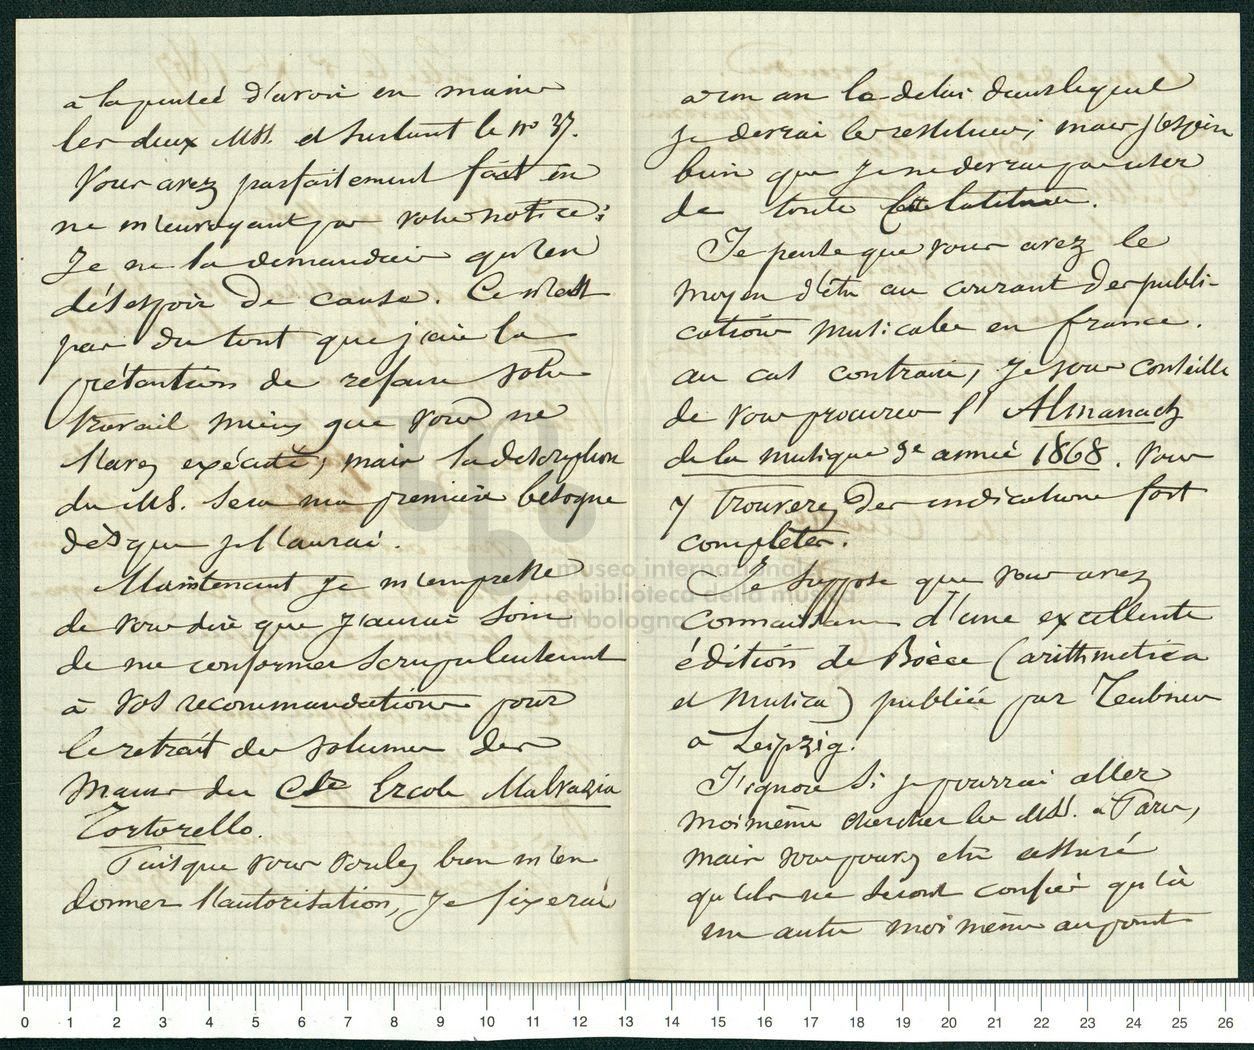 à la pensée d'avoir en mains
les deux MSS. et surtout le no 37.
Vous avez parfaitement fait en
ne m'envoyant pas votre notice;
Je ne la demandais qu'en
désespoir de cause. Ce n'est
pas du tout que j'aie la
prétention de refaire votre
travail mieux que vous ne
l'avez exécuté, mais la description
du MS. sera ma première besogne
dès que je l'aurai.
Maintenant je m'empresse
de vous dire que j'aurai soin
de me conformer scrupuleusement
à vos recommandations pour
le retrait des volumes des
mains du Cte Ercole Malvazia
Tortorello.
Puisque vous voulez bien m'en
donner l'autorisation, je fixerai
à un an le délai dans lequel
je devrai les restituer; mais j'espère
bien que je ne devrai pas user
de toute cette latitude.
Je pense que vous avez le
moyen d'être au courant des publi-
cations musicales en France.
au cas contraire, je vous conseille
de vous procurer l'Almanach
de la musique 3e année 1868. Vous
y trouverez des indications fort
complètes.
Je suppose que vous avez
connaissance d'une excellente
édition de Boèce (arithmetica
et musica) publiée par Teubner
à Leipzig.
J'ignore si je pourrai aller
moi même chercher les MSS. à Paris,
mais vous pouvez être assuré
qu'ils ne seront confiés qu'à
un autre moi même au point
museo internazionale
e biblioteca della musica
di bologna
0 1 2 3 4 5 6 7 8 9 10 11 12 13 14 15 16 17 18 19 20 21 22 23 24 25 26